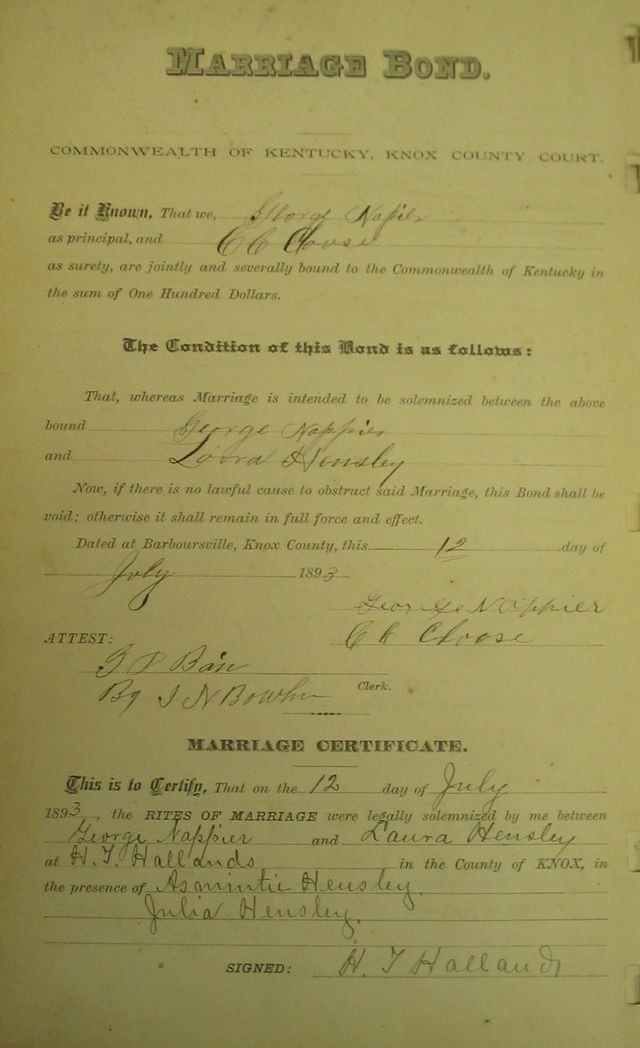 MARRIAGE BOND.
COMMONWEALTH OF KENTUCKY, KNOX COUNTY COURT.
Be it Known, That we, George Napier
as principal, and C C Cloose
as surety, are jointly and severally bound to the Commonwealth of Kentucky in
the sum of One Hundred Dollars.
The Condition of this Bond is as follows:
That, whereas Marriage is intended to be solemnized between the above
bound George Nappier
and Loora Hensley
Now, if there is no lawful cause to obstruct said Marriage, this Bond shall be
void; otherwise it shall remain in full force and effect.
Dated at Barboursville, Knox County, this 12 day of
July 1893
George Nappier
ATTEST: C C Cloose
By
Clerk.
MARRIAGE CERTIFICATE.
This is to Certify, That on the 12 day of July
1893, the RITES OF MARRIAGE were legally solemnized by me between
George Nappier and Laura Hensley
at H. T. Hallands in the County of KNOX, in
the presence of Asmintie Hensley.
Julia Hensley.
SIGNED: H. T Halland